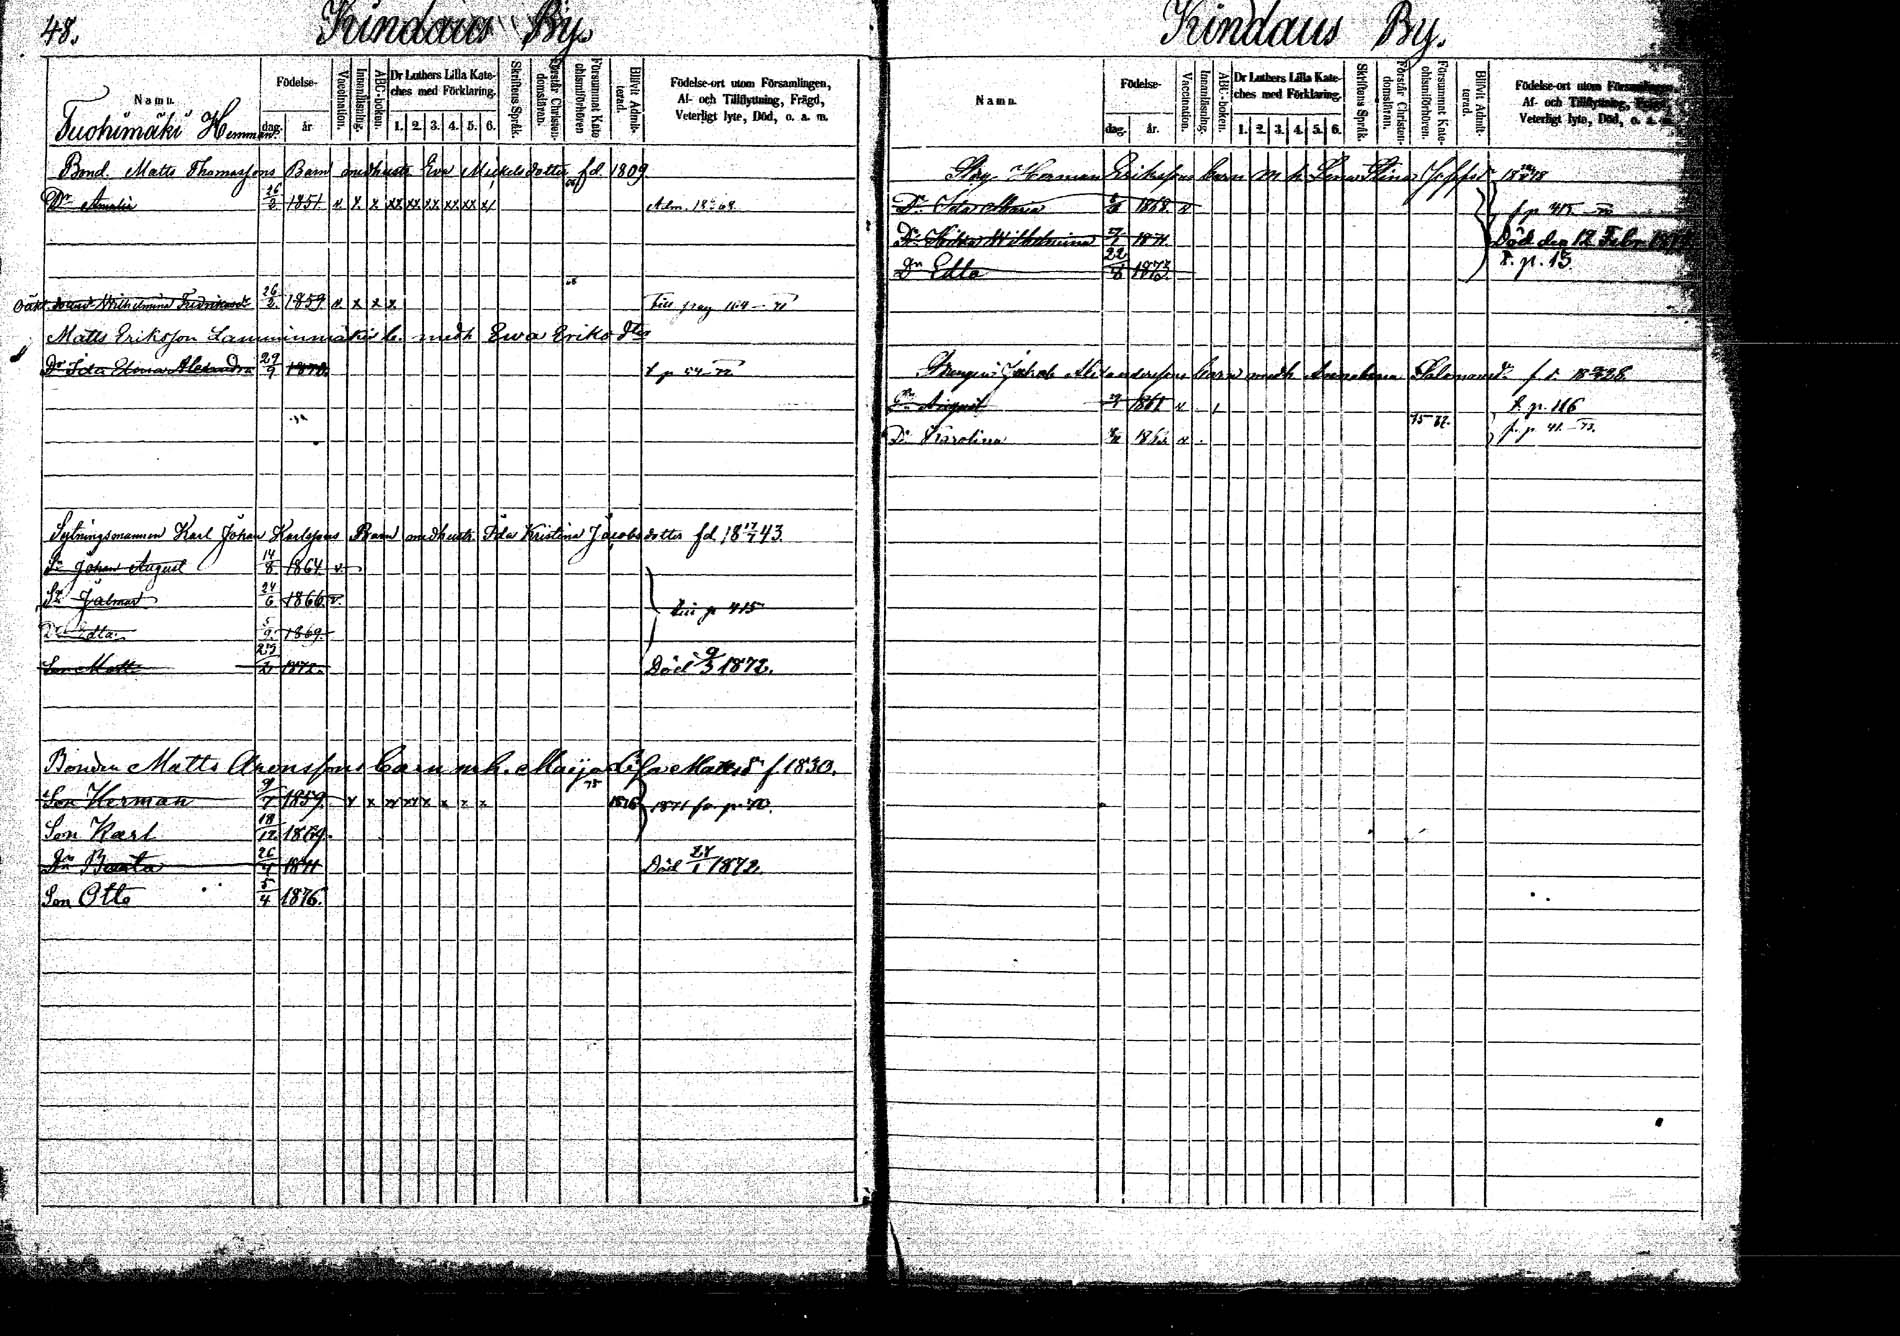 48.
Kindaus By.
Namn.
Födelse-
dag.
år
Vaccination.
Innanläsning.
ABC-boken.
Dr Luthers Lilla Kate-
ches med Förklaring.
1. 2. 3. 4. 5. 6.
Skriftens Språk.
Förstår Christen-
domsläran.
Försummat Kate
chismiförhören
Blifvit Admit-
terad.
Födelse-ort utom Församlingen,
Af- och Tillflyttning, Frägd,
Veterligt lyte, Död, o. a. m.
Tuohimäki Hemman
Bond. Matts Thomassons Barn medhustr Eva Mickelsdotter fd. 1809
Dr Amalia 26/2 1851. v x x xx xx xx xx xx x/ Adm. 1868
Wilhelmina 26/2 1859 v x x x Till pag 164 - 71
Matts Eriksson Lamminmäkis b. medh Ewa Eriksdtr
Dr Ida Alexandra 29/9 1870. f p 54-72
Sytningsmannen Karl Johan Karlssons Barn medhustr. Ida Kristina Jacobsdotter fd. 18 17/7 43.
Sn Johan August 14/8 1864 v
Sn Jalmar 24/6 1866. v.
Dr Edla. 5/9. 1869.
p 415
Son Matts 23/2 1872. Död 9/3 1872.
Bonden Matts Aronssons barn mh. Maija Lisa Mattsdr f. 1830.
Son Herman 9/7 1859. v x xx xx x x x x 1876 1871 fr. p. 40.
Son Karl 18/12 1869.
Dr Beata 26/4 1871 Död 28/1 1872
Son Otto 5/4 1876.
Kindaus By.
Namn.
Födelse-
dag. år.
Vaccination.
Innanläsning.
ABC-boken.
Dr Luthers Lilla Kate-
ches med Förklaring.
1. 2. 3. 4. 5. 6.
Skriftens Språk.
Förstår Christen-
domsläran.
Försummat Kate-
chismiförhören.
Blifvit Admit-
terad.
Födelse-ort utom Församlingen,
Af- och Tillflyttning, Frägd,
Veterligt lyte, Död, o. a. m.
Herman Erikssons barn m h Lena Stina
Dr Ida Maria 1868. v f p 415
Dr Wilhelmina 1871. Död den 12 Febr.
Dr Edla 22/8 1873. f. p. 13.
Drengen Jakob Alexanderssons barn medh Annalena Salomonsdr
August 1861 v f. p. 116
Dr Karolina v 75 77. f. p. 41. -73.